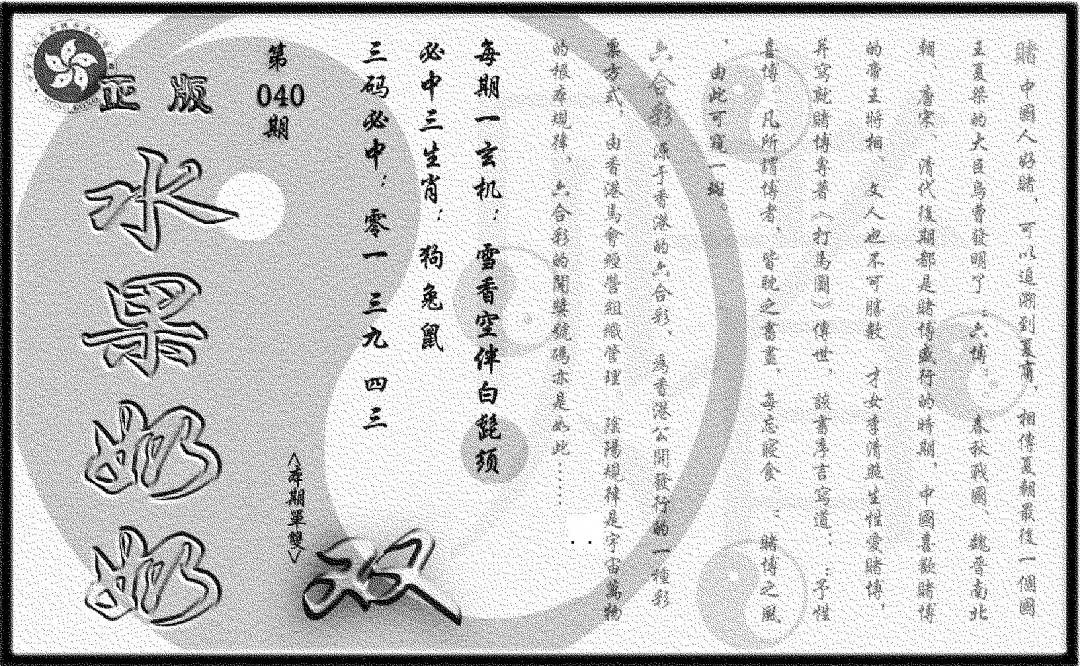 賭 中國人好賭，可以追溯到夏商，相傳夏朝最後一個國
王夏桀的大臣烏曹發明了：六博。春秋戰國、魏晉南北
朝、唐宋、清代後期都是賭博盛行的時期，中國喜歡賭博
的帝王將相 文人也不可勝數 才女李清照生性愛賭博，
并寫就賭博專著《打馬圖》傳世，該書序言寫道：：予性
喜博，凡所謂博者，皆耽之晝晝，每忘寢食 ：賭博之風
，由此可窺一斑。
六合彩 源于香港的六合彩、為香港公開發行的一種彩
票方式，由香港馬會經營組織管理 陰陽規律是宇宙萬物
的根本規律，六合彩的開獎號碼亦是如此……
每期一玄机：雪香空伴白髭须
必中三生肖：狗兔鼠
三码必中：零一 三九 四三
第
040
期
正版
水果奶奶
<本期單雙>
双